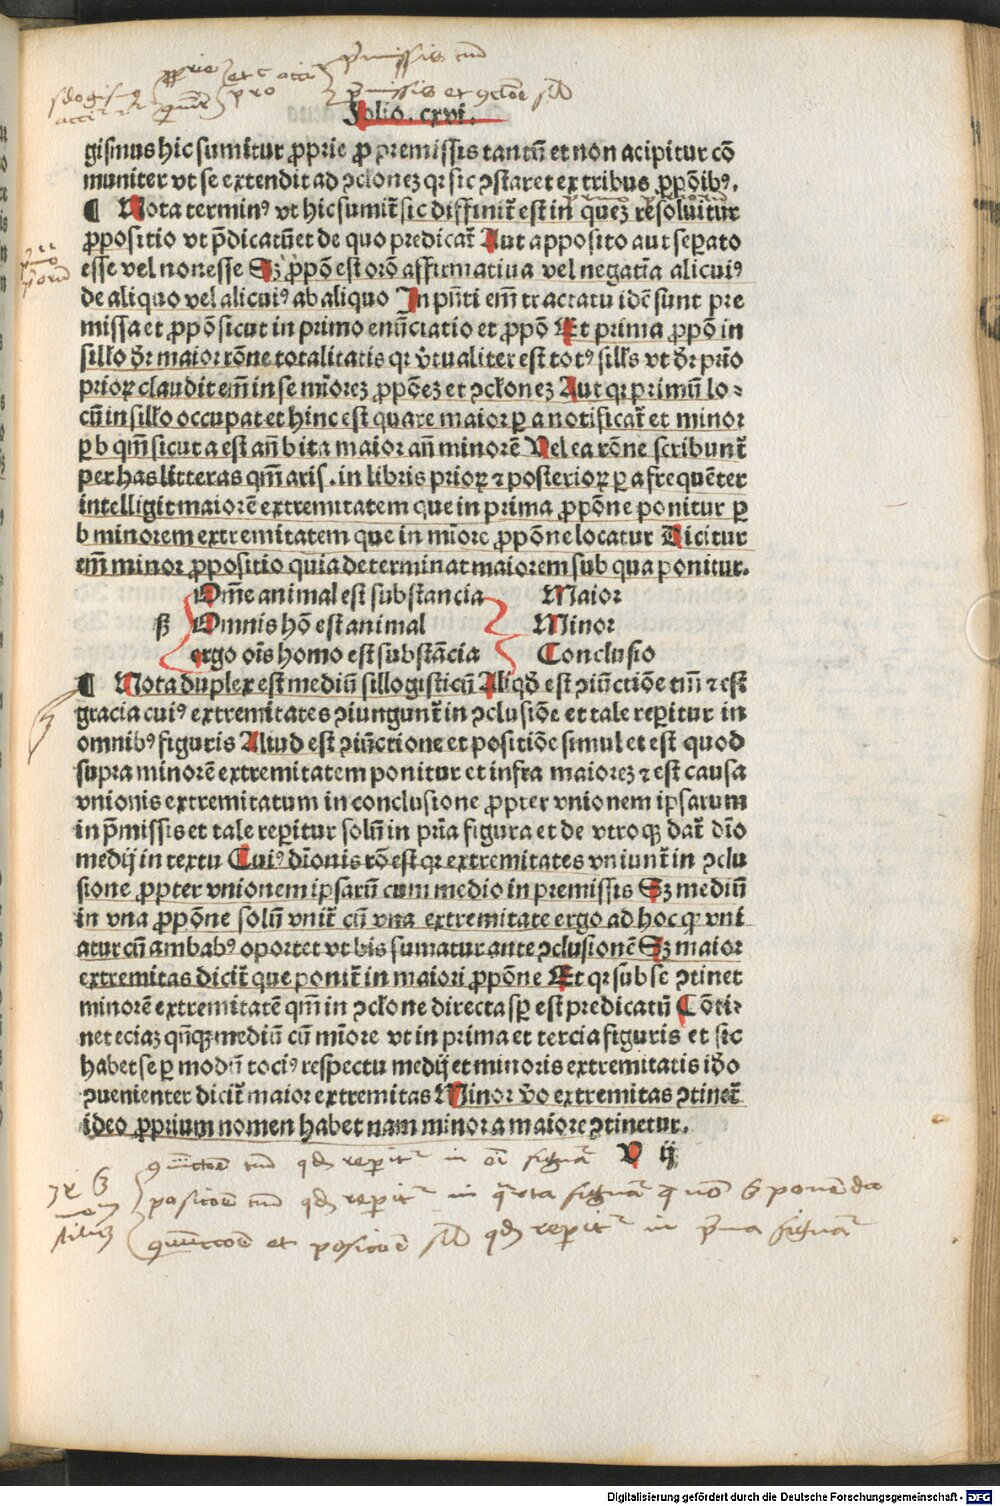 p̄missis tm̄
p̱prie et sic acci
silogismus p̄missis et ꝯcl̄one sil̄
accipitur pro
Folio. cxvi.
gismus hic sumitur ꝓprie ꝓ premissis tantū et non acipitur cō
muniter vt se extendit ad ꝯclonez qꝛ sic ꝯstaret ex tribus ꝓpōib⁹.
¶ Nota termin⁹ vt hic sumit᷑ sic diffinit᷑ est in quez resoluitur
ꝓpositio vt p̄dicatū et de quo predicat᷑ Aut apposito aut seꝑato
esse vel non esse Sꝫ ꝓpō est orō affirmatiua vel negatīa alicui⁹
de aliquo vel alicui⁹ ab aliquo In pn̄ti em̄ tractatu idē sunt pre
missa et ꝓpō sicut in primo enūciatio et ꝓpō Et prima ꝓpō in
sillo dr̄ maior rōne totalitatis qꝛ v̄tualiter est tot⁹ sills vt dr̄ pr̄io
prioꝝ claudit em̄ in se mīorez ꝓpōez et ꝯclonez Aut qꝛ primū lo⸗
cū in sillo occupat et hinc est quare maior ꝑ a notificat᷑ et minor
ꝑ b qm̄ sicut a est an̄ b ita maior an̄ minorē Uel ea rōne scribunt᷑
per has litteras qm̄ aris. in libris prioꝝ ⁊ posterioꝝ ꝑ a frequēter
intelligit maiorē extremitatem que in prima ꝓpōne ponitur ꝑ
b minorem extremitatem que in mīore ꝓpōne locatur Dicitur
em̄ minor ꝓpositio quia determinat maiorem sub qua ponitur.
Om̄e animal est substancia Maior
ß Omnis hō est animal Minor
ergo oīs homo est substācia Conclusio
¶ Nota duplex est mediū sillogisticū Aliqd̄ est ꝯiūctiōe tm̄ ⁊ est
gracia cui⁹ extremitates ꝯiungunt᷑ in ꝯclusiōe et tale reꝑitur in
omnib⁹ figuris Aliud est ꝯiūctione et positiōe simul et est quod
supra minorē extremitatem ponitur et infra maiorez ⁊ est causa
vnionis extremitatum in conclusione ꝓpter vnionem ipsarum
in p̄missis et tale reꝑitur solū in pr̄ia figura et de vtroqꝫ dat᷑ dīo
medij in textu Cui⁹ dīonis rō est qꝛ extremitates vniunt᷑ in ꝯclu
sione ꝓpter vnionem ipsarū cum medio in premissis Sꝫ mediū
in vna ꝓpōne solū vnit᷑ cū vna extremitate ergo ad hoc qꝫ vni
atur cū ambab⁹ oportet vt bis sumatur ante ꝯclusionē Sꝫ maior
extremitas dicit᷑ que ponit᷑ in maiori ꝓpōne Et qꝛ sub se ꝯtinet
minorē extremitatē qm̄ in ꝯclone directa sꝑ est predicatū Cōti⸗
net eciaꝫ qn̄qꝫ mediū cū mīore vt in prima et tercia figuris et sic
habet se ꝑ modū toci⁹ respectu medij et minoris extremitatis iḋo
ꝯuenienter dicit᷑ maior extremitas Minor v̄o extremitas ꝯtinet᷑
ideo ꝓprium nomen habet nam minor a maiore ꝯtinetur.
U ij
ꝯiūctōe tm̄ qd̄ reꝑit᷑ in oī figura
positōe tm̄ qd̄ reꝑit᷑ in q̄rta figura
ꝯiūctōe et positōe sil̄ qd̄ reꝑit᷑ in p̄ma figura
Digitalisierung gefördert durch die Deutsche Forschungsgemeinschaft - DFG